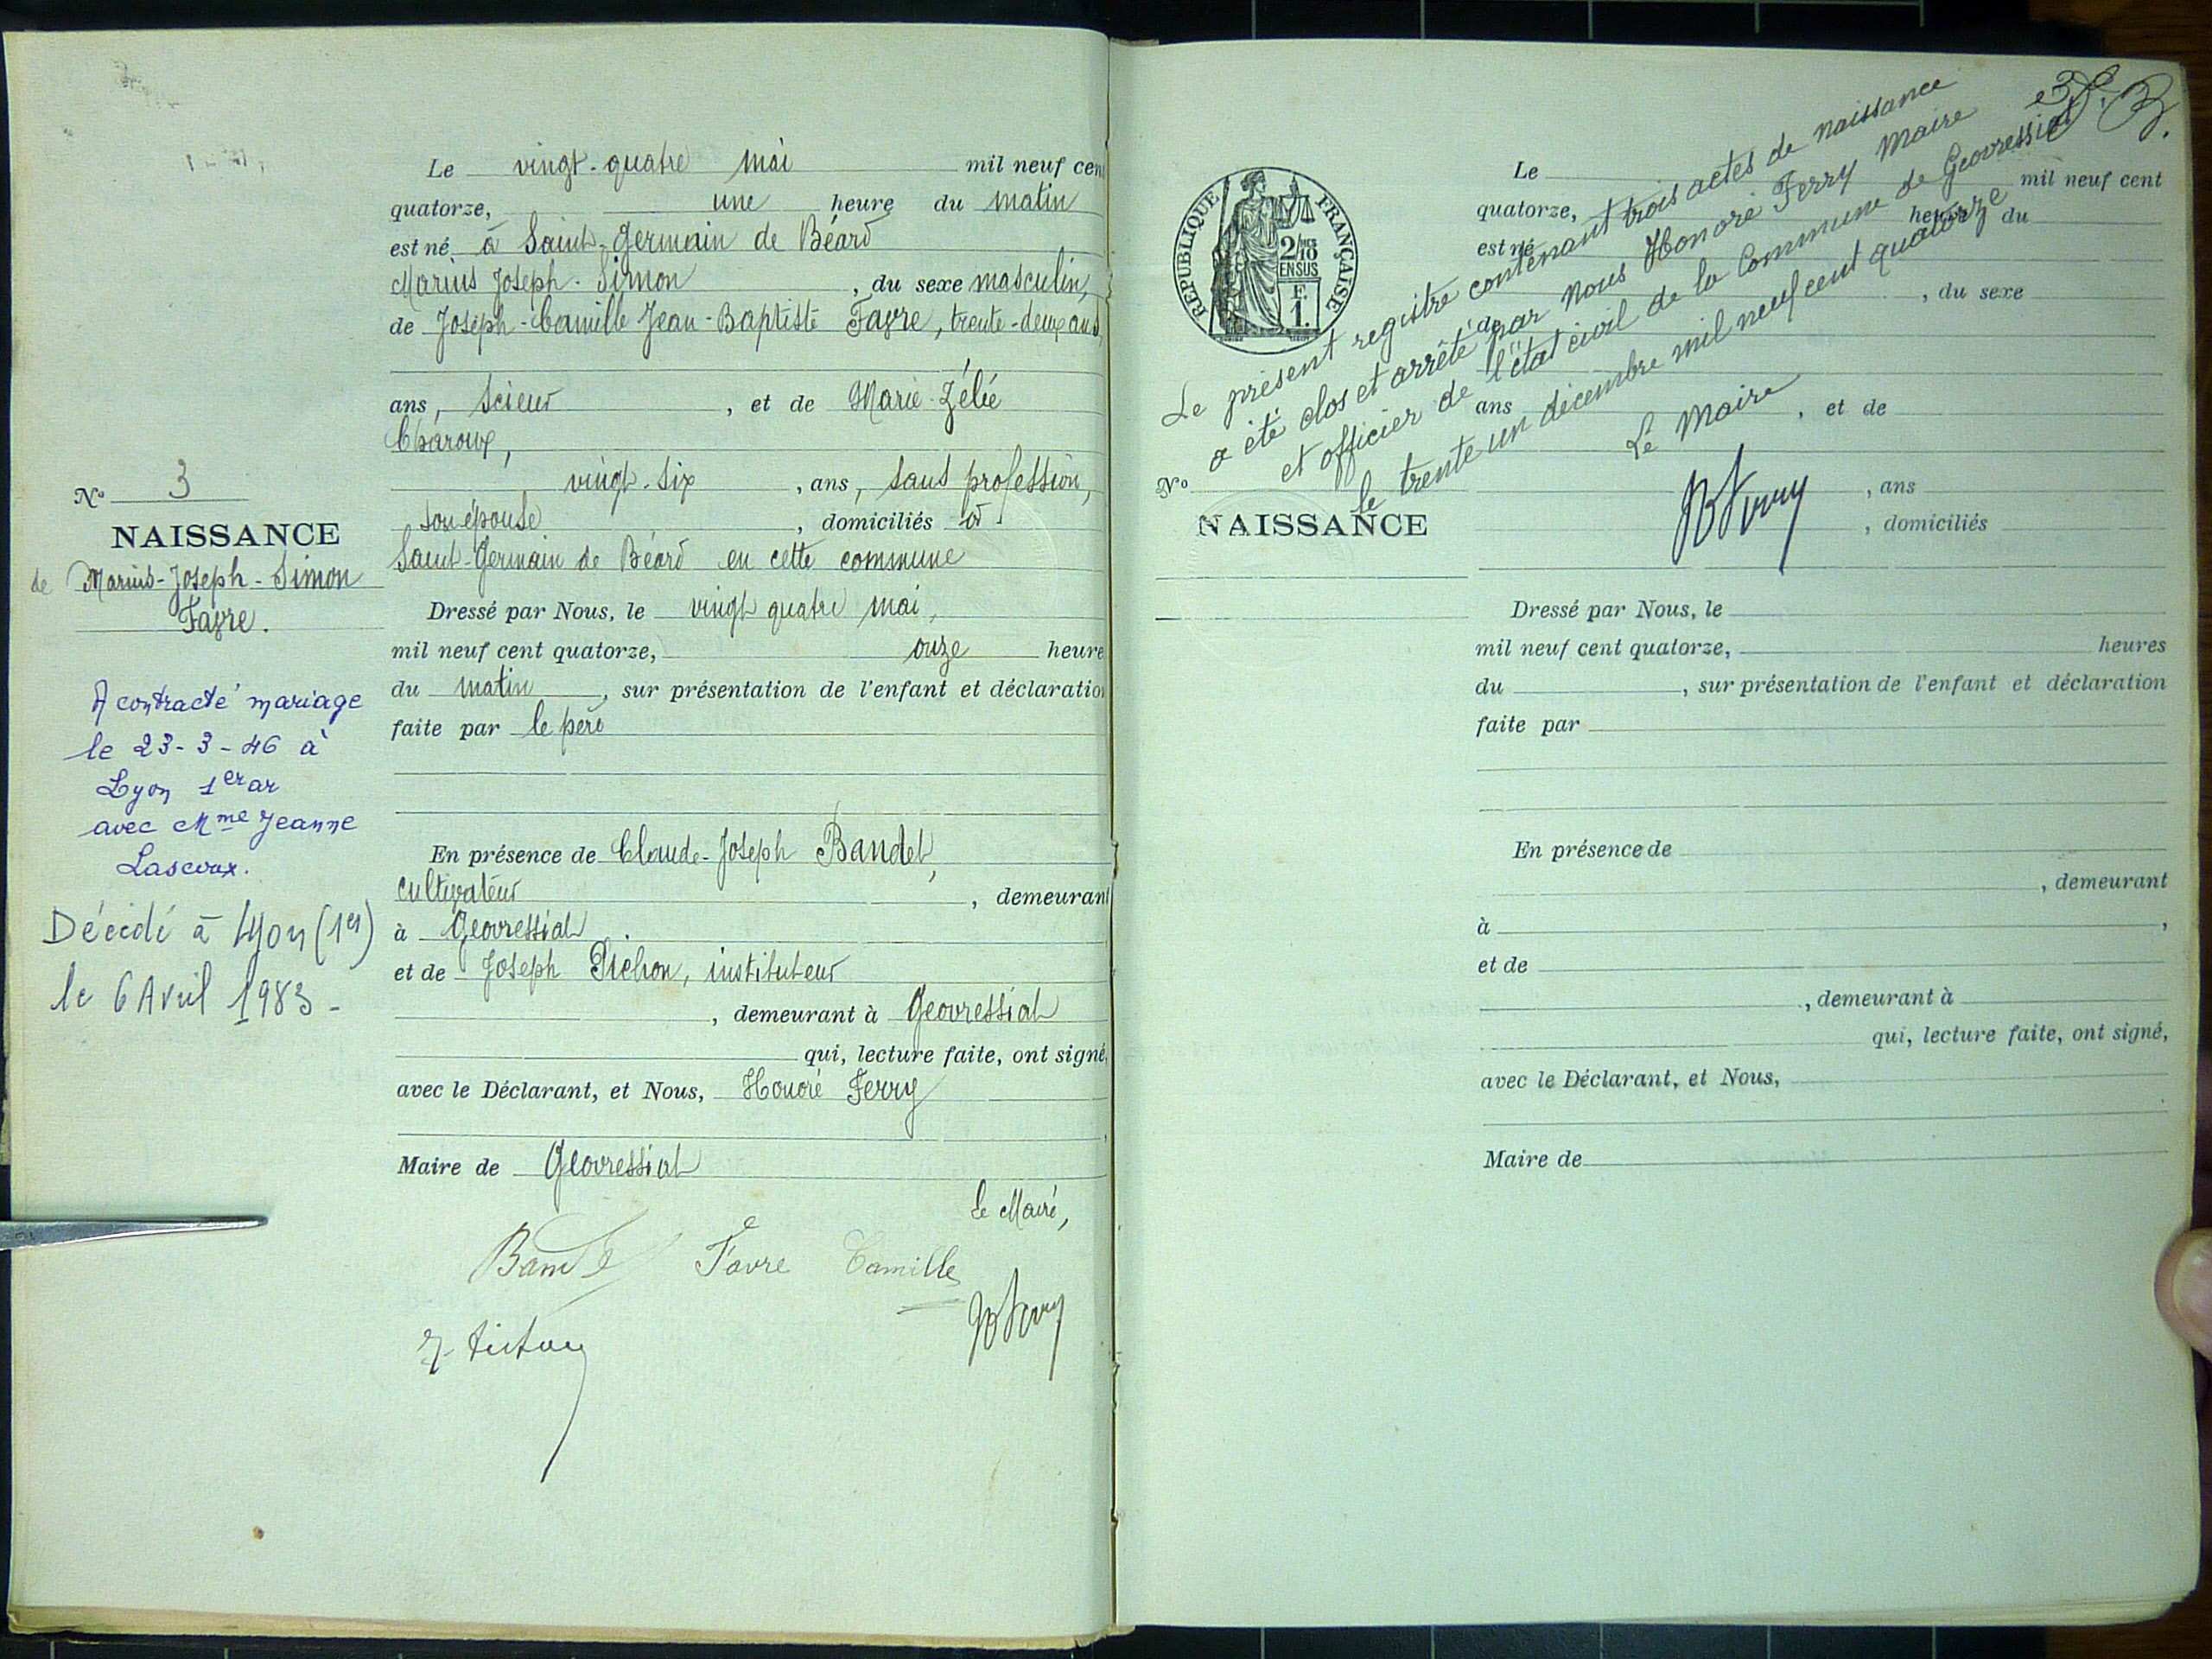 Le vingt-quatre mai mil neuf cen
quatorze, une heure du matin
est né à Saint-Germain de Béard
Marius Joseph-Simon, du sexe masculin,
de Joseph-Camille Jean-Baptiste Favre, trente-deux ans,
ans, scieur, et de Marie-Zélie
Charoux,
vingt-six, ans, sans profession,
son épouse, domiciliés à
Saint-Germain de Béard en cette commune
Dressé par Nous, le vingt quatre mai,
mil neuf cent quatorze, onze heure
du matin, sur présentation de l'enfant et déclaration
faite par le père
En présence de Claude-Joseph Bandet,
cultivateur, demeurant
à Geovressiat
et de Joseph Pichon, instituteur
, demeurant à Geovressiat
qui, lecture faite, ont signé,
avec le Déclarant, et Nous, Honoré Ferry
Maire de Geovressiat
Le Maire,
Favre Camille
No 3
NAISSANCE
de Marius-Joseph-Simon
Favre.
A contracté mariage
le 23-3-46 à
Lyon 1er ar
avec Mme Jeanne
Lascoux.
Décédé à Lyon (1er)
le 6 Avril 1983-
RÉPUBLIQUE FRANÇAISE
2/10 EN SUS
F.
1.
Le présent registre contenant trois actes de naissance
a été clos et arrêté par nous Honoré Ferry Maire
et officier de l'état civil de la Commune de Geovressiat
le trente un décembre mil neuf cent quatorze
Le Maire
No
NAISSANCE
Le mil neuf cent
quatorze, heure du
est né
, du sexe
de
ans, et de
, ans
, domiciliés
Dressé par Nous, le
mil neuf cent quatorze, heures
du, sur présentation de l'enfant et déclaration
faite par
En présence de
, demeurant
à,
et de
, demeurant à
qui, lecture faite, ont signé,
avec le Déclarant, et Nous,
Maire de